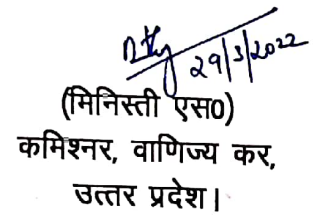 29/3/2022
(मिनिस्ती एस0)
कमिश्नर, वाणिज्य कर,
उत्तर प्रदेश।